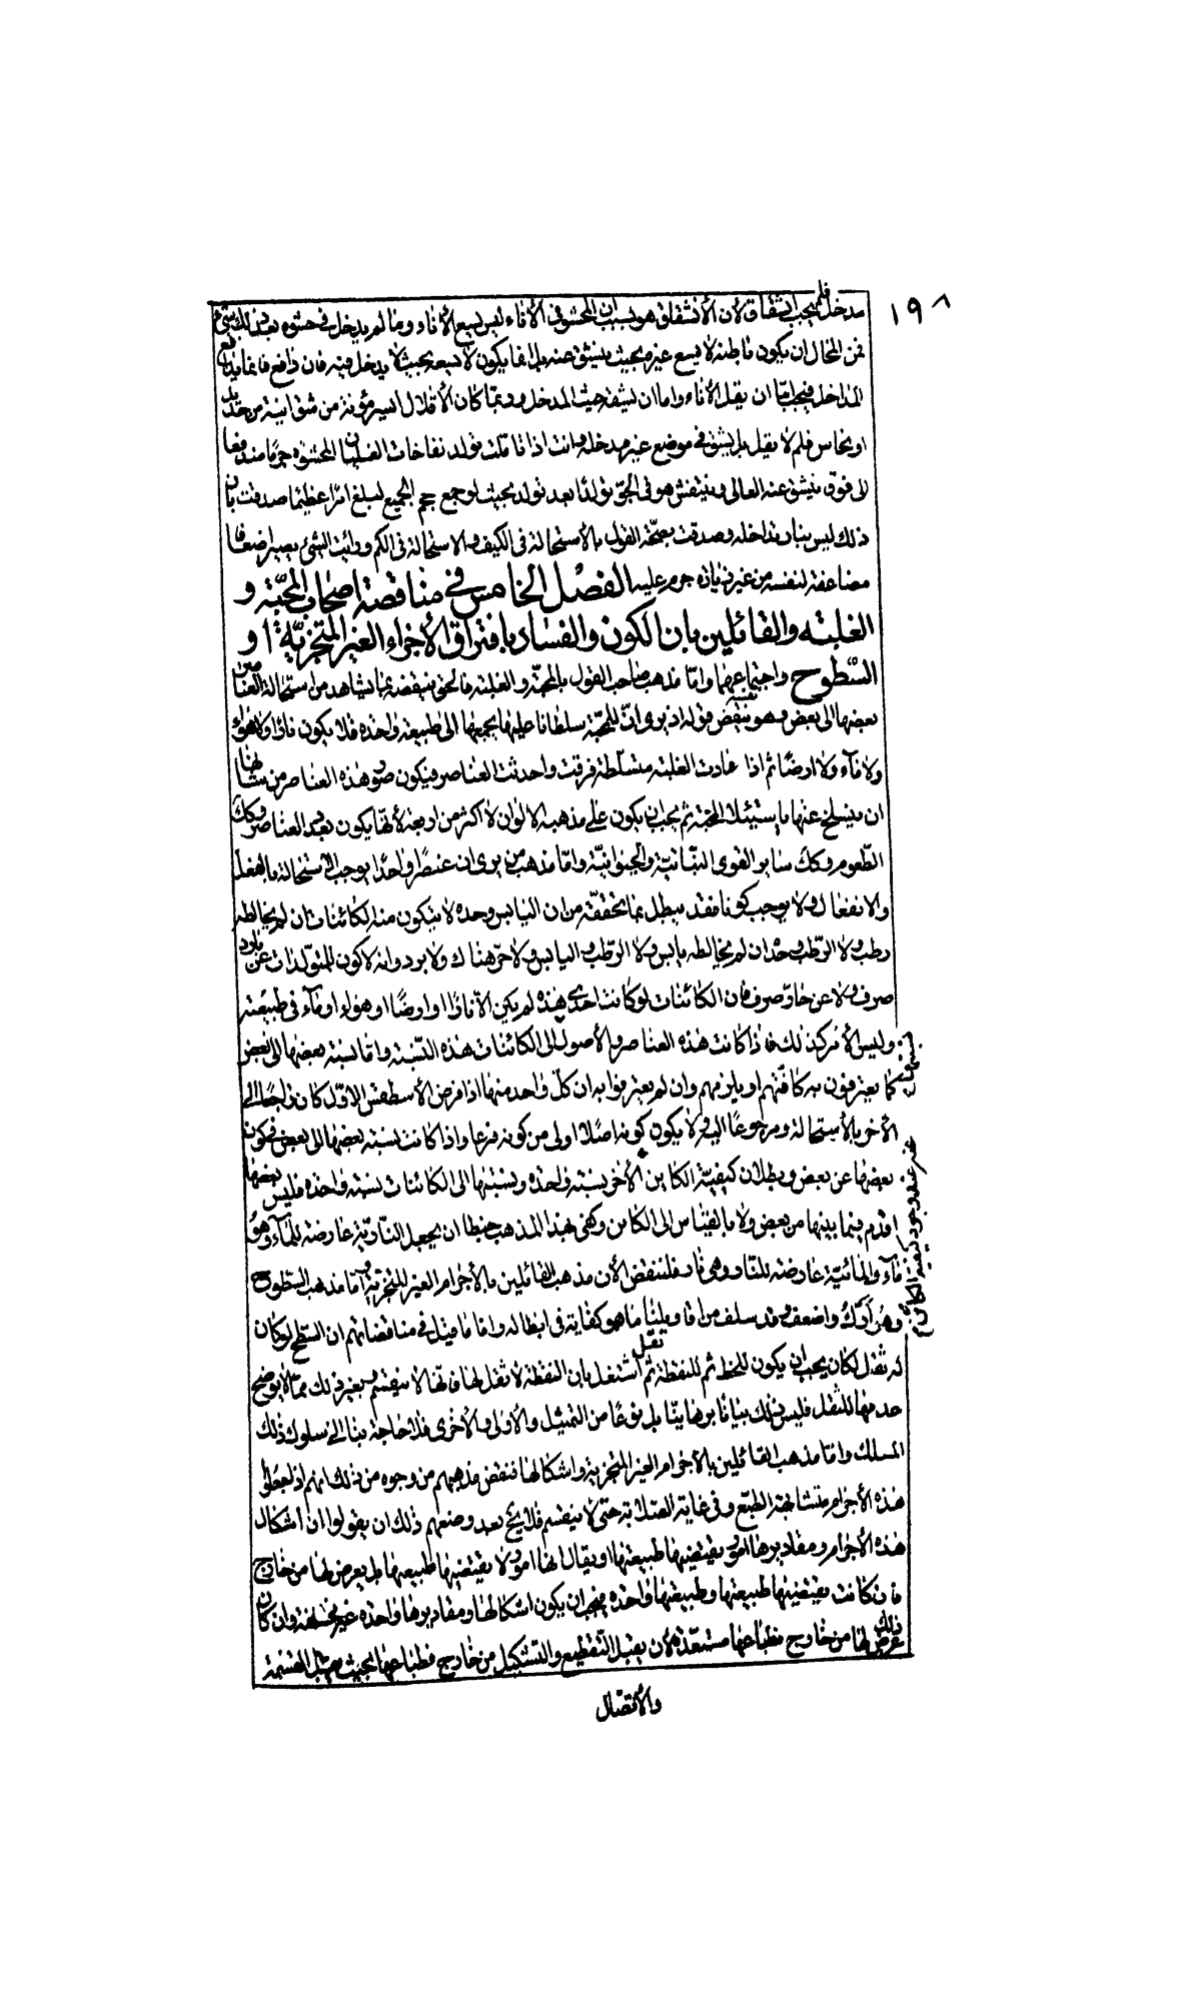 ١٩٨
مدخل فلم يجب انشقاق لأن الأنشقاق هو بسبب ان المحشو فى الأناء ليس يسع الأناء وما لم يدخل فى حشوه بعد ذلك شىء
فمن المحال ان يكون باطنه لا يسع غيره بحيث ينشق عنه بل انما يكون لا يسعه بحيث لا يدخل فيه فان دافع فانما يدافع
المداخل فيجب امّا ان يقل الأناء واما ان يشقه حيث المدخل وربما كان الأقلال ايسر مؤنة من شق ابنية من حديد
او نحاس فلم لا يقل بل يشق فى موضع غير مدخله وانت اذا تأملت تولد نفاخات الغليان المحشوه جرمًا مندفعا
الى فوق ينشق عنه الغالى وينتفش هو فى الجوّ تولدًا بعد تولد بحيث لو جمع حجم الجميع لبلغ امرًا عظيما صدقت بان
ذلك ليس بنار تداخله وصدقت بصحّة القول بالأستحالة فى الكيف والاستحالة فى الكم ورأيت الشئ يصير اضعافا
مضاعفة لنفسه من غير زيادة جرم عليه الفصل الخامس فى مناقضة اصحاب المحبّة و
الغلبة والقائلين بان الكون والفساد بافتراق الأجزاء الغير المتجزيّة او
السّطوح واجتماعها وامّا مذهب صاحب القول بالمحبّة والغلبة فالحق ينقضه بما نشاهد من استحالة العناصر
بعضها الى بعض وهو نفسه ينقض قوله اذ يرى انّ للمحبّة سلطانا عليها يجمعها الى طبيعة واحده فلا يكون نارًا ولا هواء
ولا ماء ولا ارضًا ثم اذا عادت الغلبة متسلّطة فرقت واحدثت العناصر فيكون صور هذه العناصر من شانها
ان ينسلخ عنها باستيلاء المحبّة ثم يجب ان يكون على مذهبه الالوان لا اكثر من اربعة لأنها يكون بعدد العناصر وكك
الطّعوم وكك سائر القوى النباتيّة والحيوانيّة وامّا مذهب من يرى ان عنصرًا واحدًا يوجب الأستحالة بالفعل
والانفعال ولا يوجب كونا فقد يبطل بما تحققه من ان اليابس وحده لا يتكون منه الكائنات ان لم يخالطه
رطب ولا الرّطب وحده ان لم يخالطه يابس ولا الرّطب واليابس ولا حرّ هناك ولا برد وانه لا كون للمتولّدات عن بارد
صرف ولا عن حارّ صرف فان الكائنات لو كانت احدى هذه لم يكن الّا نارًا او ارضًا او هواء او ماء فى طبيعته
وليس الأمر كذلك فاذا كانت هذه العناصر والأصول الى الكائنات هذه النّسبة وامّا نسبة بعضها الى بعض
كما يعترفون به كافّتهم او يلزمهم وان لم يعترفوا به ان كلّ واحد منها اذا فرض الأسطقس الاوّل كان راجعًا الى
الأخر بالأستحالة ومرجوعًا اليه ولا يكون كونه اصلًا اولى من كونه فرعا واذا كانت نسبة بعضها الى بعض فى كون
بعضها عن بعض وبطلان كيفيّة الكاين الأخر نسبة واحده ونسبتها الى الكائنات نسبة واحده فليس بعضها
اقدم فيما بينها من بعض ولا بالقياس الى الكائن وكفى بهذا المذهب خبطا ان يجعل النّاريّة عارضة للماء وهو
ماء والمائيّة عارضة للنار وهى نار فلننقض الأن مذهب القائلين بالأجرام الغير المتجزية وامّا مذهب السّطوح
وهو أركّ واضعف وقد سلف من اقاويلنا ما هو كفاية فى ابطاله وامّا ما قيل فى مناقضاتهم ان السّطح لو كان
له ثقل لكان يجب ان يكون للخط ثم للنقطة ثقل ثم اشتغل بان النقطة لا ثقل لها فانّها لا ينقسم وبغير ذلك ممّا لا يوضح
عدمها للثقل فليس ذلك بيانا برهانيّا بل نوعًا من التمثيل والأولى والأخرى فلا حاجة بنا الى سلوك ذلك
المسلك وامّا مذهب القائلين بالأجرام الغير المتجزية واشكالها فننقض مذهبهم من وجوه من ذلك انهم اذ جعلوا
هذه الأجرام متشابهة الطّبع وفى غاية الصّلابة حتى لا ينقسم فلا يخ بعد وضعهم ذلك ان يقولوا ان اشكال
هذه الأجرام ومقاديرها امور يقتضيها طبيعتها او يقال انها امور لا يقتضيها طبيعتها بل يعرض لها من خارج
فان كانت يقتضيها طبيعتها وطبيعتها واحده فيجب ان يكون اشكالها ومقاديرها واحده غير مختلفة وان كان
ذلك عرض لها من خارج فطباعها مستعدّة لأن يقبل التّقطيع والتّشكيل من خارج فطباعها بحيث يقبل القسمة
والأتصال